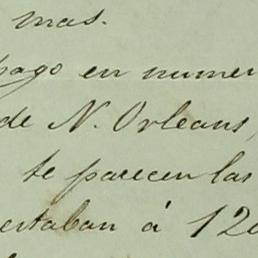 mas.
pago en numer
de N. Orleans,
te parecen las
ertaban á 12